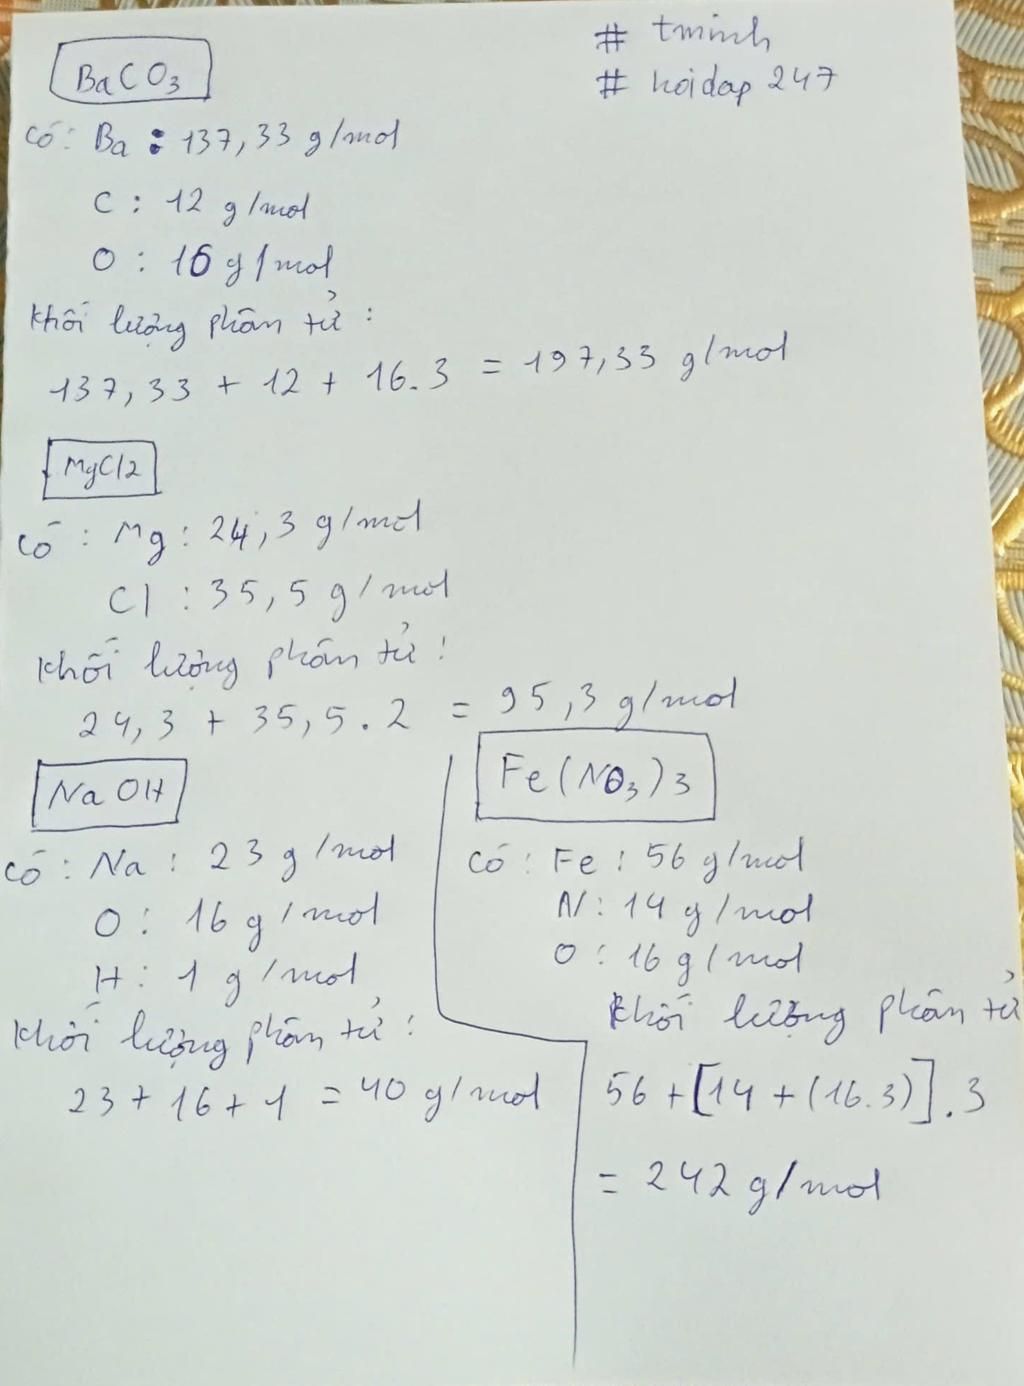 # tminh
# hoidap 247
BaCO3
Có: Ba : 137,33 g/mol
C : 12 g/mol
O : 16 g/mol
Khối lượng phân tử :
137,33 + 12 + 16.3 = 197,33 g/mol
MgCl2
Có : Mg : 24,3 g/mol
Cl : 35,5 g/mol
Khối lượng phân tử :
24,3 + 35,5 . 2 = 95,3 g/mol
NaOH
Có : Na : 23 g/mol
O : 16 g/mol
H : 1 g/mol
Khối lượng phân tử :
23 + 16 + 1 = 40 g/mol
Fe(NO3)3
Có : Fe : 56 g/mol
N : 14 g/mol
O : 16 g/mol
Khối lượng phân tử
56 + [14 + (16.3)] . 3
= 242 g/mol